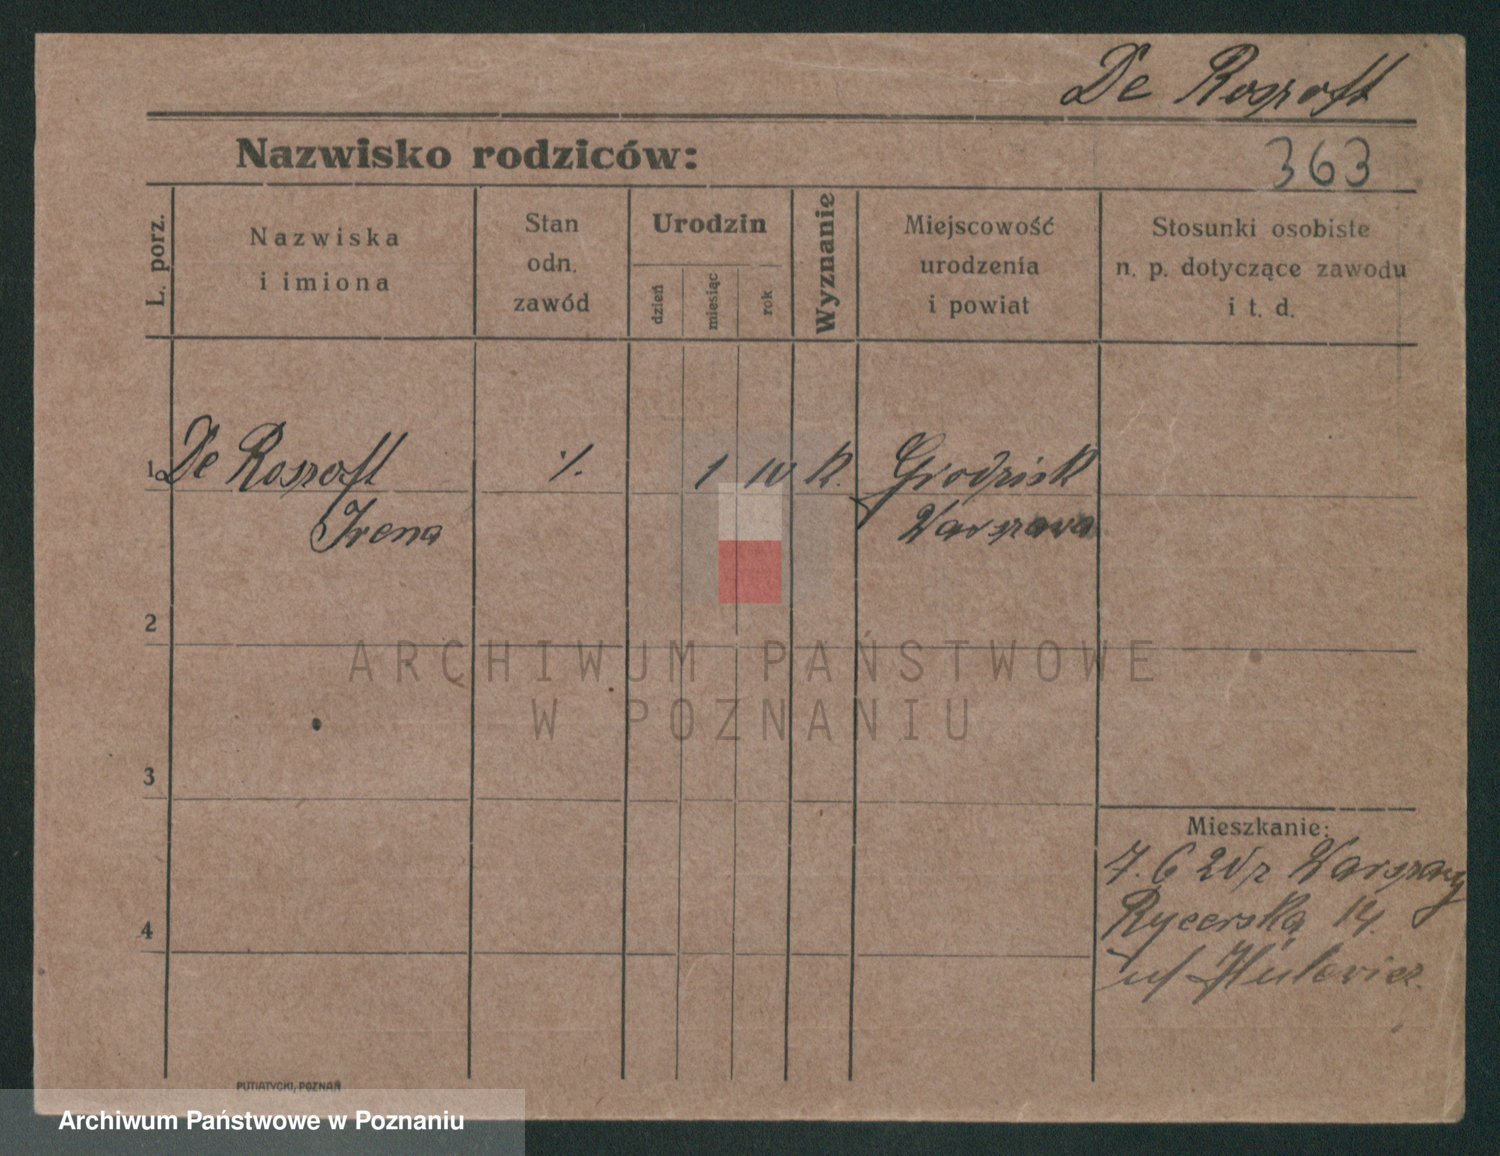 De Rosroft
Nazwisko rodziców:
363
L. porz.
Nazwiska
i imiona
Stan
odn.
zawód
Urodzin
dzień
miesiąc
rok
Wyznanie
Miejscowość
urodzenia
i powiat
Stosunki osobiste
n. p. dotyczące zawodu
i t. d.
1 De Rosroft ./. 1 10 k. Grodzisk
Irena Warszawa
2
ARCHIWUM PAŃSTWOWE
W POZNANIU
3
Mieszkanie:
7. 6 20 z Warszawy
Rycerska 14.
4
PUTIATYCKI, POZNAŃ
Archiwum Państwowe w Poznaniu